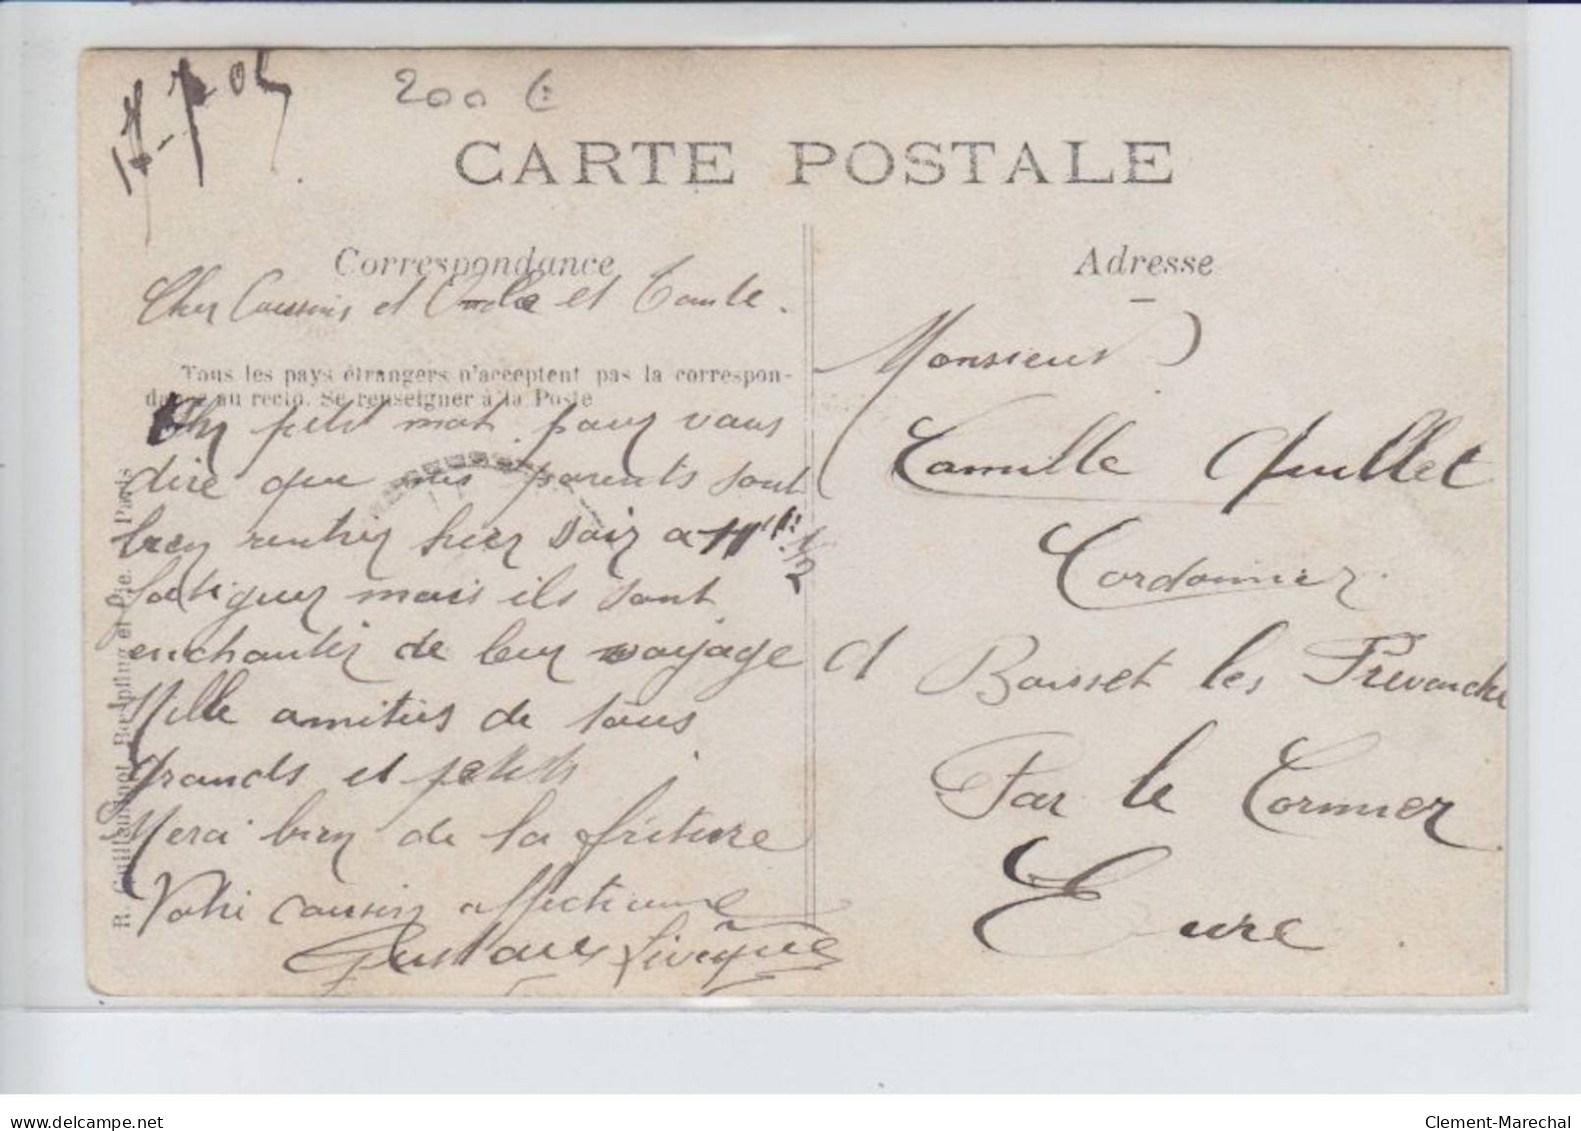 17-7-05
200 €
CARTE POSTALE
Correspondance
Cher Coussins et Oncle et Tante.
Tous les pays étrangers n'acceptent pas la correspon-
dance au recto. Se renseigner à la Poste
Un petit mot pour vous
dire que mes parents sont
bien rentrer hier soir a 11h 1/2
fatiguer mais ils sont
enchanter de leur voyage
Mille amities de tous
grands et petits
Merci bien de la friture
Votre cousin affectionné
Gustave Livêque
R. Guilleminot, Bœspflug et Cie. - Paris
Adresse
Monsieur
Camille Quillet
Cordonnier
à Boisset les Prévanche
Par le Cormier
Eure
delcampe.net
Clement-Marechal